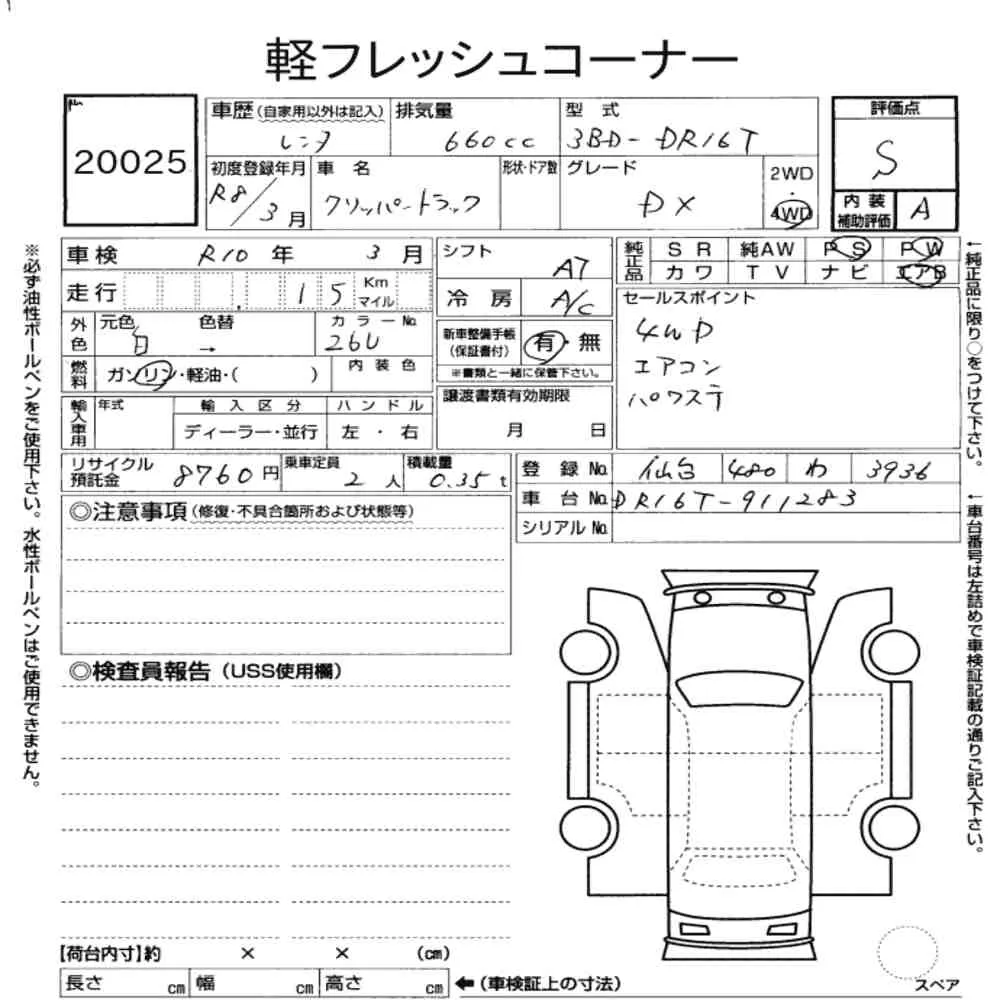 軽フレッシュコーナー
20025
車歴 (自家用以外は記入) レンタ
排気量 660cc
型式 3BD-DR16T
評価点 S
初度登録年月 R8/3月
車名 クリッパートラック
形状・ドア数
グレード DX
2WD・4WD
内装補助評価 A
車検 R10年 3月
シフト AT
純正品 SR 純AW PS PW
カワ TV ナビ エアB
走行 15 Km マイル
冷房 A/C
セールスポイント
4WD
エアコン
パワステ
外色 元色 白 色替 →
カラーNo. 26U
新車整備手帳(保証書付) 有・無
※書類と一緒に保管下さい。
燃料 ガソリン・軽油・( )
内装色
譲渡書類有効期限
月 日
輸入車用 年式 輸入区分 ハンドル
ディーラー・並行 左・右
リサイクル預託金 8760円
乗車定員 2人
積載量 0.35t
登録No. 仙台 480 わ 3936
車台No. DR16T-911283
シリアルNo.
◎注意事項 (修復・不具合箇所および状態等)
◎検査員報告 (USS使用欄)
【荷台内寸】約 × × (cm)
長さ cm 幅 cm 高さ cm ←(車検証上の寸法)
スペア
※必ず油性ボールペンをご使用下さい。水性ボールペンはご使用できません。
←純正品に限り○をつけて下さい。
←車台番号は左詰めで車検証記載の通りご記入下さい。